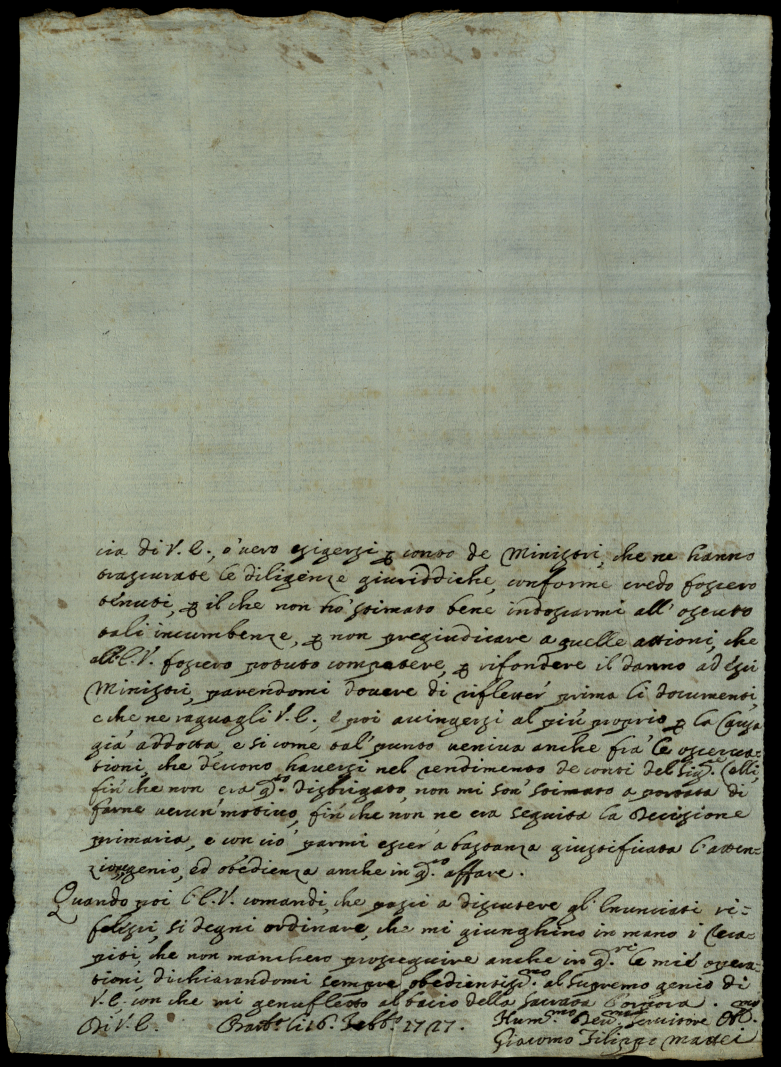 cia di V. E., ò vero esigersi ꝑ conto de Ministri, che ne hanno
trascurate le diligenze giuriddiche, conforme credo fossero
tenuti, ꝑ il che non hò stimato bene indossarmi all'
tali incumbenze, ꝑ non pregiudicare a quelle attioni, che
all'E. V. fossero potuto competere, ꝑ rifondere il danno ad essi
Ministri, parendomi dovere di rifletter prima li documenti,
e che ne raguagli V. E., e poi accingersi al più proprio ꝑ la Causa
già addotta, e si come tal punto veniva anche frà le osserva-
tioni, che devono haversi nel rendimento de conti del Sig.re Celli,
fin che non era q.to disbrigato, non mi son stimato a portata di
farne verun motivo, fin che non ne era seguita la decisione
primaria, e con ciò parmi esser a bastanza giustificata l'atten-
zione, genio, ed obedienza anche in q.to affare.
Quando poi l'E. V. comandi, che passi a discutere gl'enunciati ri-
flessi, si degni ordinare, che mi giunghino in mano i Reca-
piti, che non mancherò proseguire anche in q.ti le mie opera-
tioni, dichiarandomi sempre obedientiss.mo al supremo genio di
V. E., con che mi genufletto al bacio della Sacrata Porpora.
Di V. E. li 6. Febb.o 1727. Hum.mo Dev.mo Servitore
Giacomo Filippo Mattei